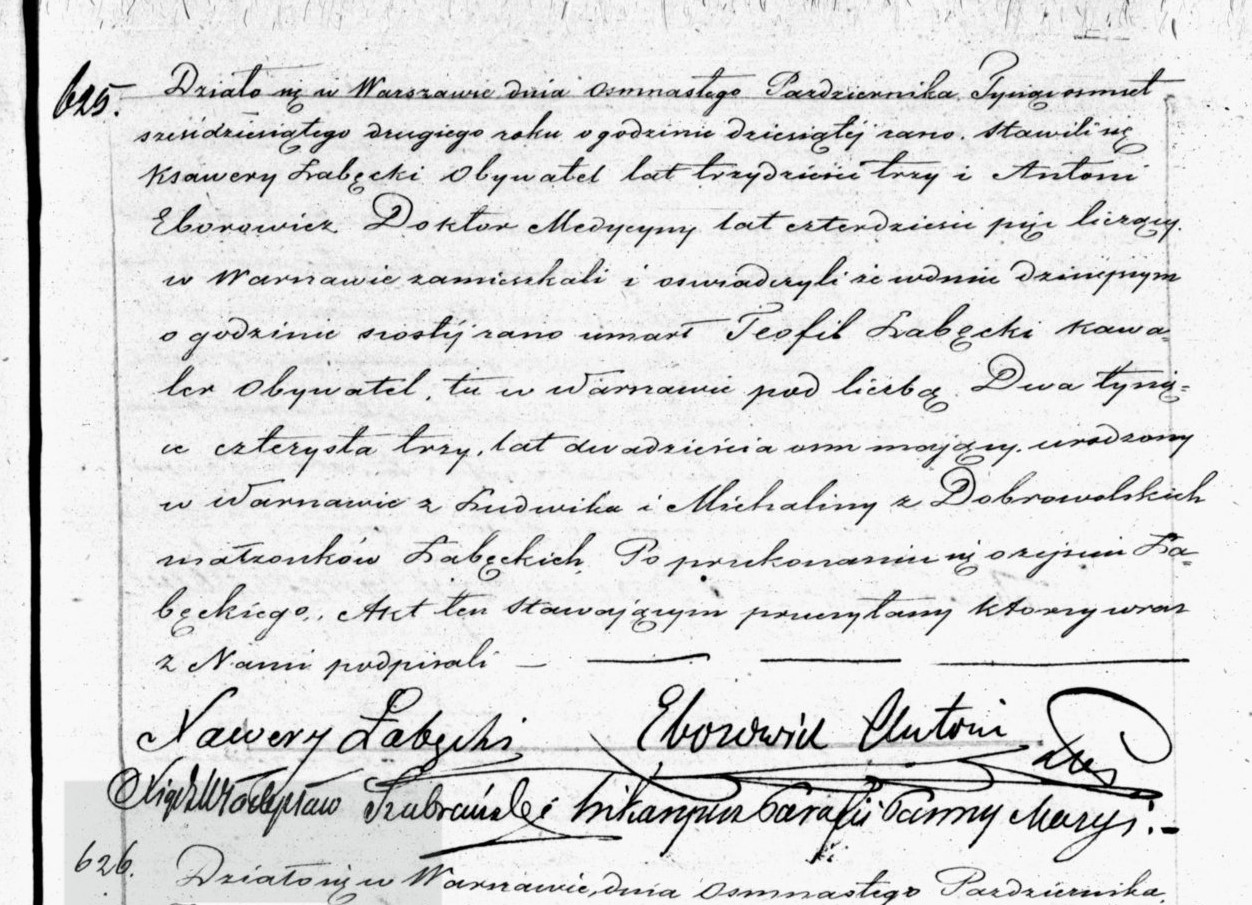 625. Działo się w Warszawie, dnia Osmnastego Pazdziernika, Tysiąc osmset
szesidziesiątego drugiego roku o godzinie dziesiątéj rano. Stawili się
Ksawery Łabęcki Obywatel lat trzydzieści trzy i Antoni
Eborowicz Doktor Medycyny lat czterdzieści pięć liczący,
w Warszawie zamieszkali i oswiadczyli że w dniu dzisiejszym
o godzinie szostéj rano umarł Teofil Łabęcki Kawa=
ler Obywatel, tu w Warszawie pod liczbą Dwa tysią=
ce czterysta trzy, lat dwadzieścia osm mający, urodzony
w Warszawie z Ludwika i Michaliny z Dobrowolskich
małzonków Łabęckich, Po przekonaniu się o zejsciu Ła=
bęckiego, Akt ten Stawającym przeczytany którzy wraz
z Nami podpisali —
Xawery Łabęcki Eborowicz Antoni
Xiądz Włodzysław Szubrański Wikaryusz Parafii Panny Maryi.
626. Działo się w Warszawie, dnia Osmnastego Pazdziernika,